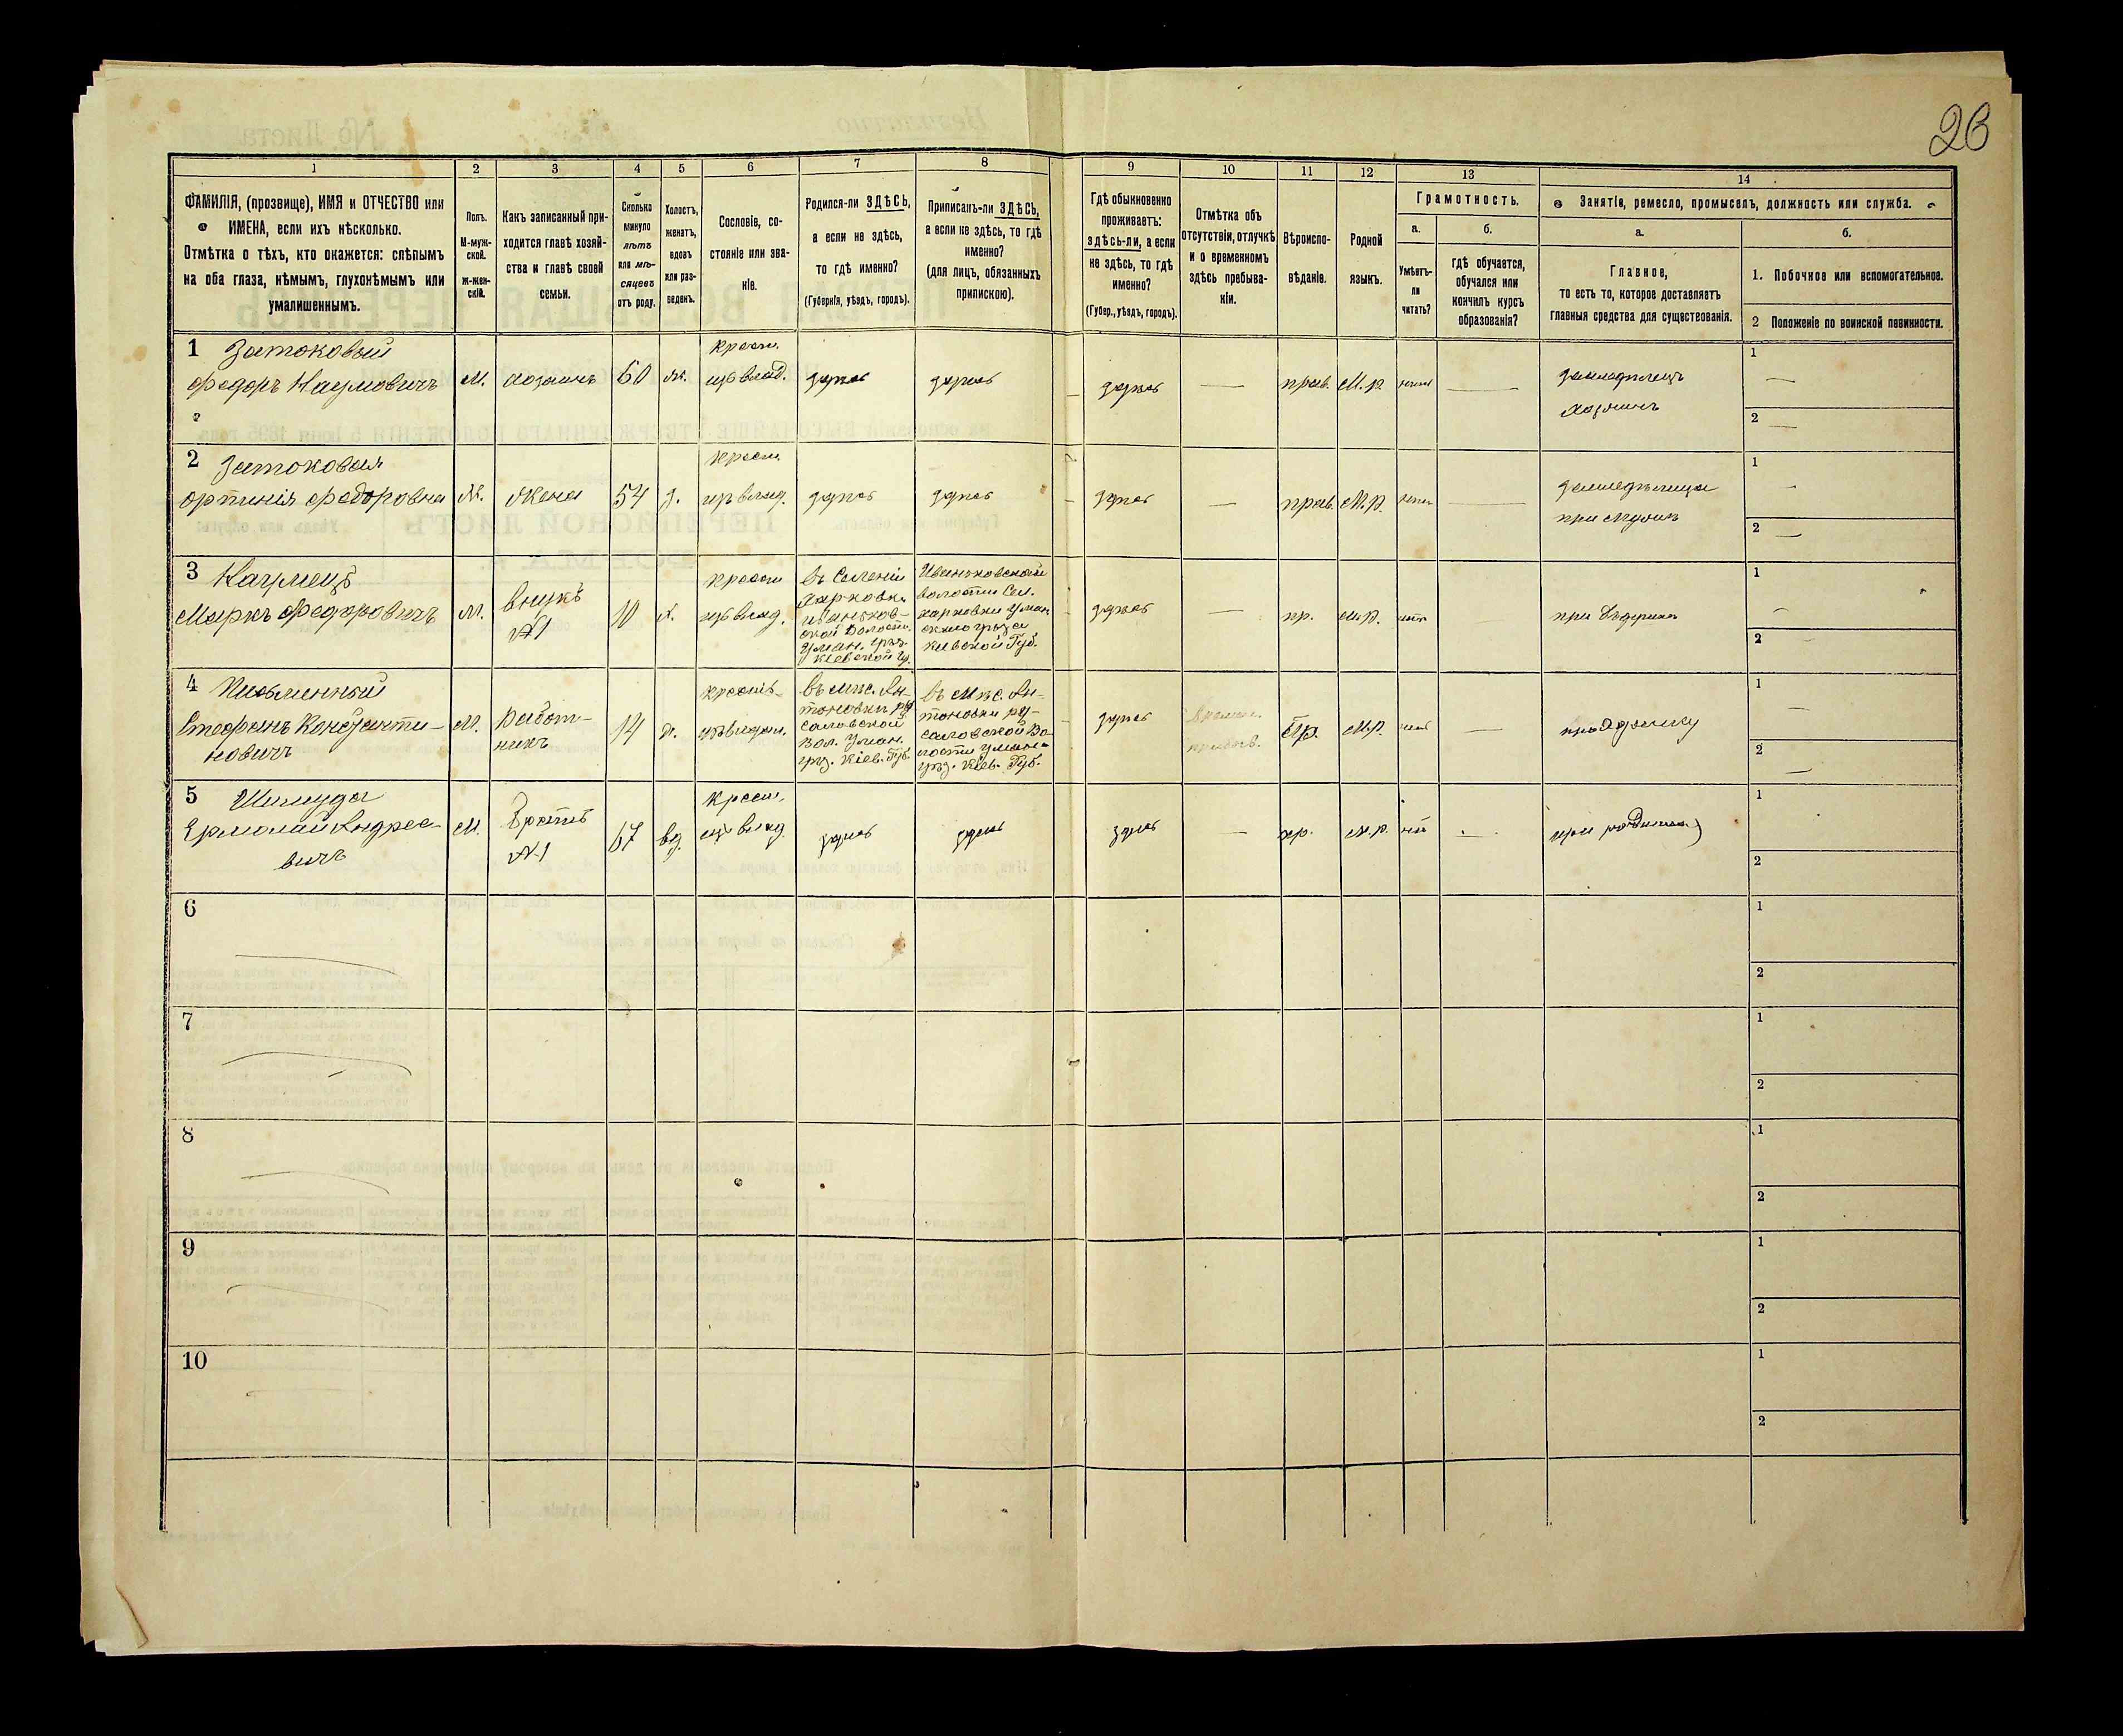 26
1 2 3 4 5 6 7 8 9 10 11 12 13 14
ФАМИЛІЯ, (прозвище), ИМЯ и ОТЧЕСТВО или
ИМЕНА, если ихъ нѣсколько.
Отмѣтка о тѣхъ, кто окажется: слѣпымъ
на оба глаза, нѣмымъ, глухонѣмымъ или
умалишеннымъ.
Полъ.
М-муж-
ской.
Ж-жен-
скій.
Какъ записанный при-
ходится главѣ хозяй-
ства и главѣ своей
семьи.
Сколько
минуло
лѣтъ
или мѣ-
сяцевъ
отъ роду.
Холостъ,
женатъ,
вдовъ
или раз-
веденъ.
Сословіе, со-
стояніе или зва-
ніе.
Родился-ли ЗДѢСЬ,
а если не здѣсь,
то гдѣ именно?
(Губернія, уѣздъ, городъ).
Приписанъ-ли ЗДѢСЬ,
а если не здѣсь, то гдѣ
именно?
(для лицъ, обязанныхъ
припискою).
Гдѣ обыкновенно
проживаетъ:
здѣсь-ли, а если
не здѣсь, то гдѣ
именно?
(Губер., уѣздъ, городъ).
Отмѣтка объ
отсутствіи, отлучкѣ
и о временномъ
здѣсь пребыва-
ніи.
Вѣроиспо-
вѣданіе.
Родной
языкъ.
Грамотность.
а.
Умѣетъ-
ли
читать?
б.
гдѣ обучается,
обучался или
кончилъ курсъ
образованія?
Занятіе, ремесло, промыселъ, должность или служба.
а.
Главное,
то есть то, которое доставляетъ
главныя средства для существованія.
б.
1. Побочное или вспомогательное.
2 Положеніе по воинской повинности.
1 Затоковый крест.
Федоръ Наумовичъ М. хозяинъ 60 ж. изъ влад. здѣсь здѣсь здѣсь — прав. М.р. — земледѣлецъ
хозяинъ
1 —
2 —
2 Затоковая крест.
Ортинія Федоровна Ж. Жена 54 з. изъ влад. здѣсь здѣсь здѣсь — прав. М.р. — земледѣлица
при мужѣ
1 —
2 —
3 Наумецъ
Маркъ Федоровичъ М. внукъ
№1
10 х. крест.
изъ влад.
въ Селеніи
Харковки
Иваньков-
ской Волости
Уман. уѣз.
Кіевской Гу.
Иваньковской
волости Сел.
Харковки Уман
скаго уѣзда
Кіевской Губ.
здѣсь — пр. М.р. нѣтъ при дѣдушкѣ
1 —
2 —
4 Письменный
Стефанъ Константи-
новичъ
М. Работ-
никъ
14 х. кресть 
въ мѣс. Ан-
тоновки ру
саловской
Вол. Уман.
уѣз. Кіев. Губ.
въ мѣс. Ан-
тоновки ру-
саловской Во-
лости Уманс
уѣз. Кіев. Губ.
здѣсь Времен.
пребыв.
Пр. М.р. —
1 —
2 —
5 Шимуда
Ермолай Андрее-
вичъ
М. Братъ
№1
67 вд. крест.
изъ влад.
здѣсь здѣсь здѣсь — пр. М.р. — при
1
2
6 1
2
7 1
2
8 1
2
9 1
2
10 1
2